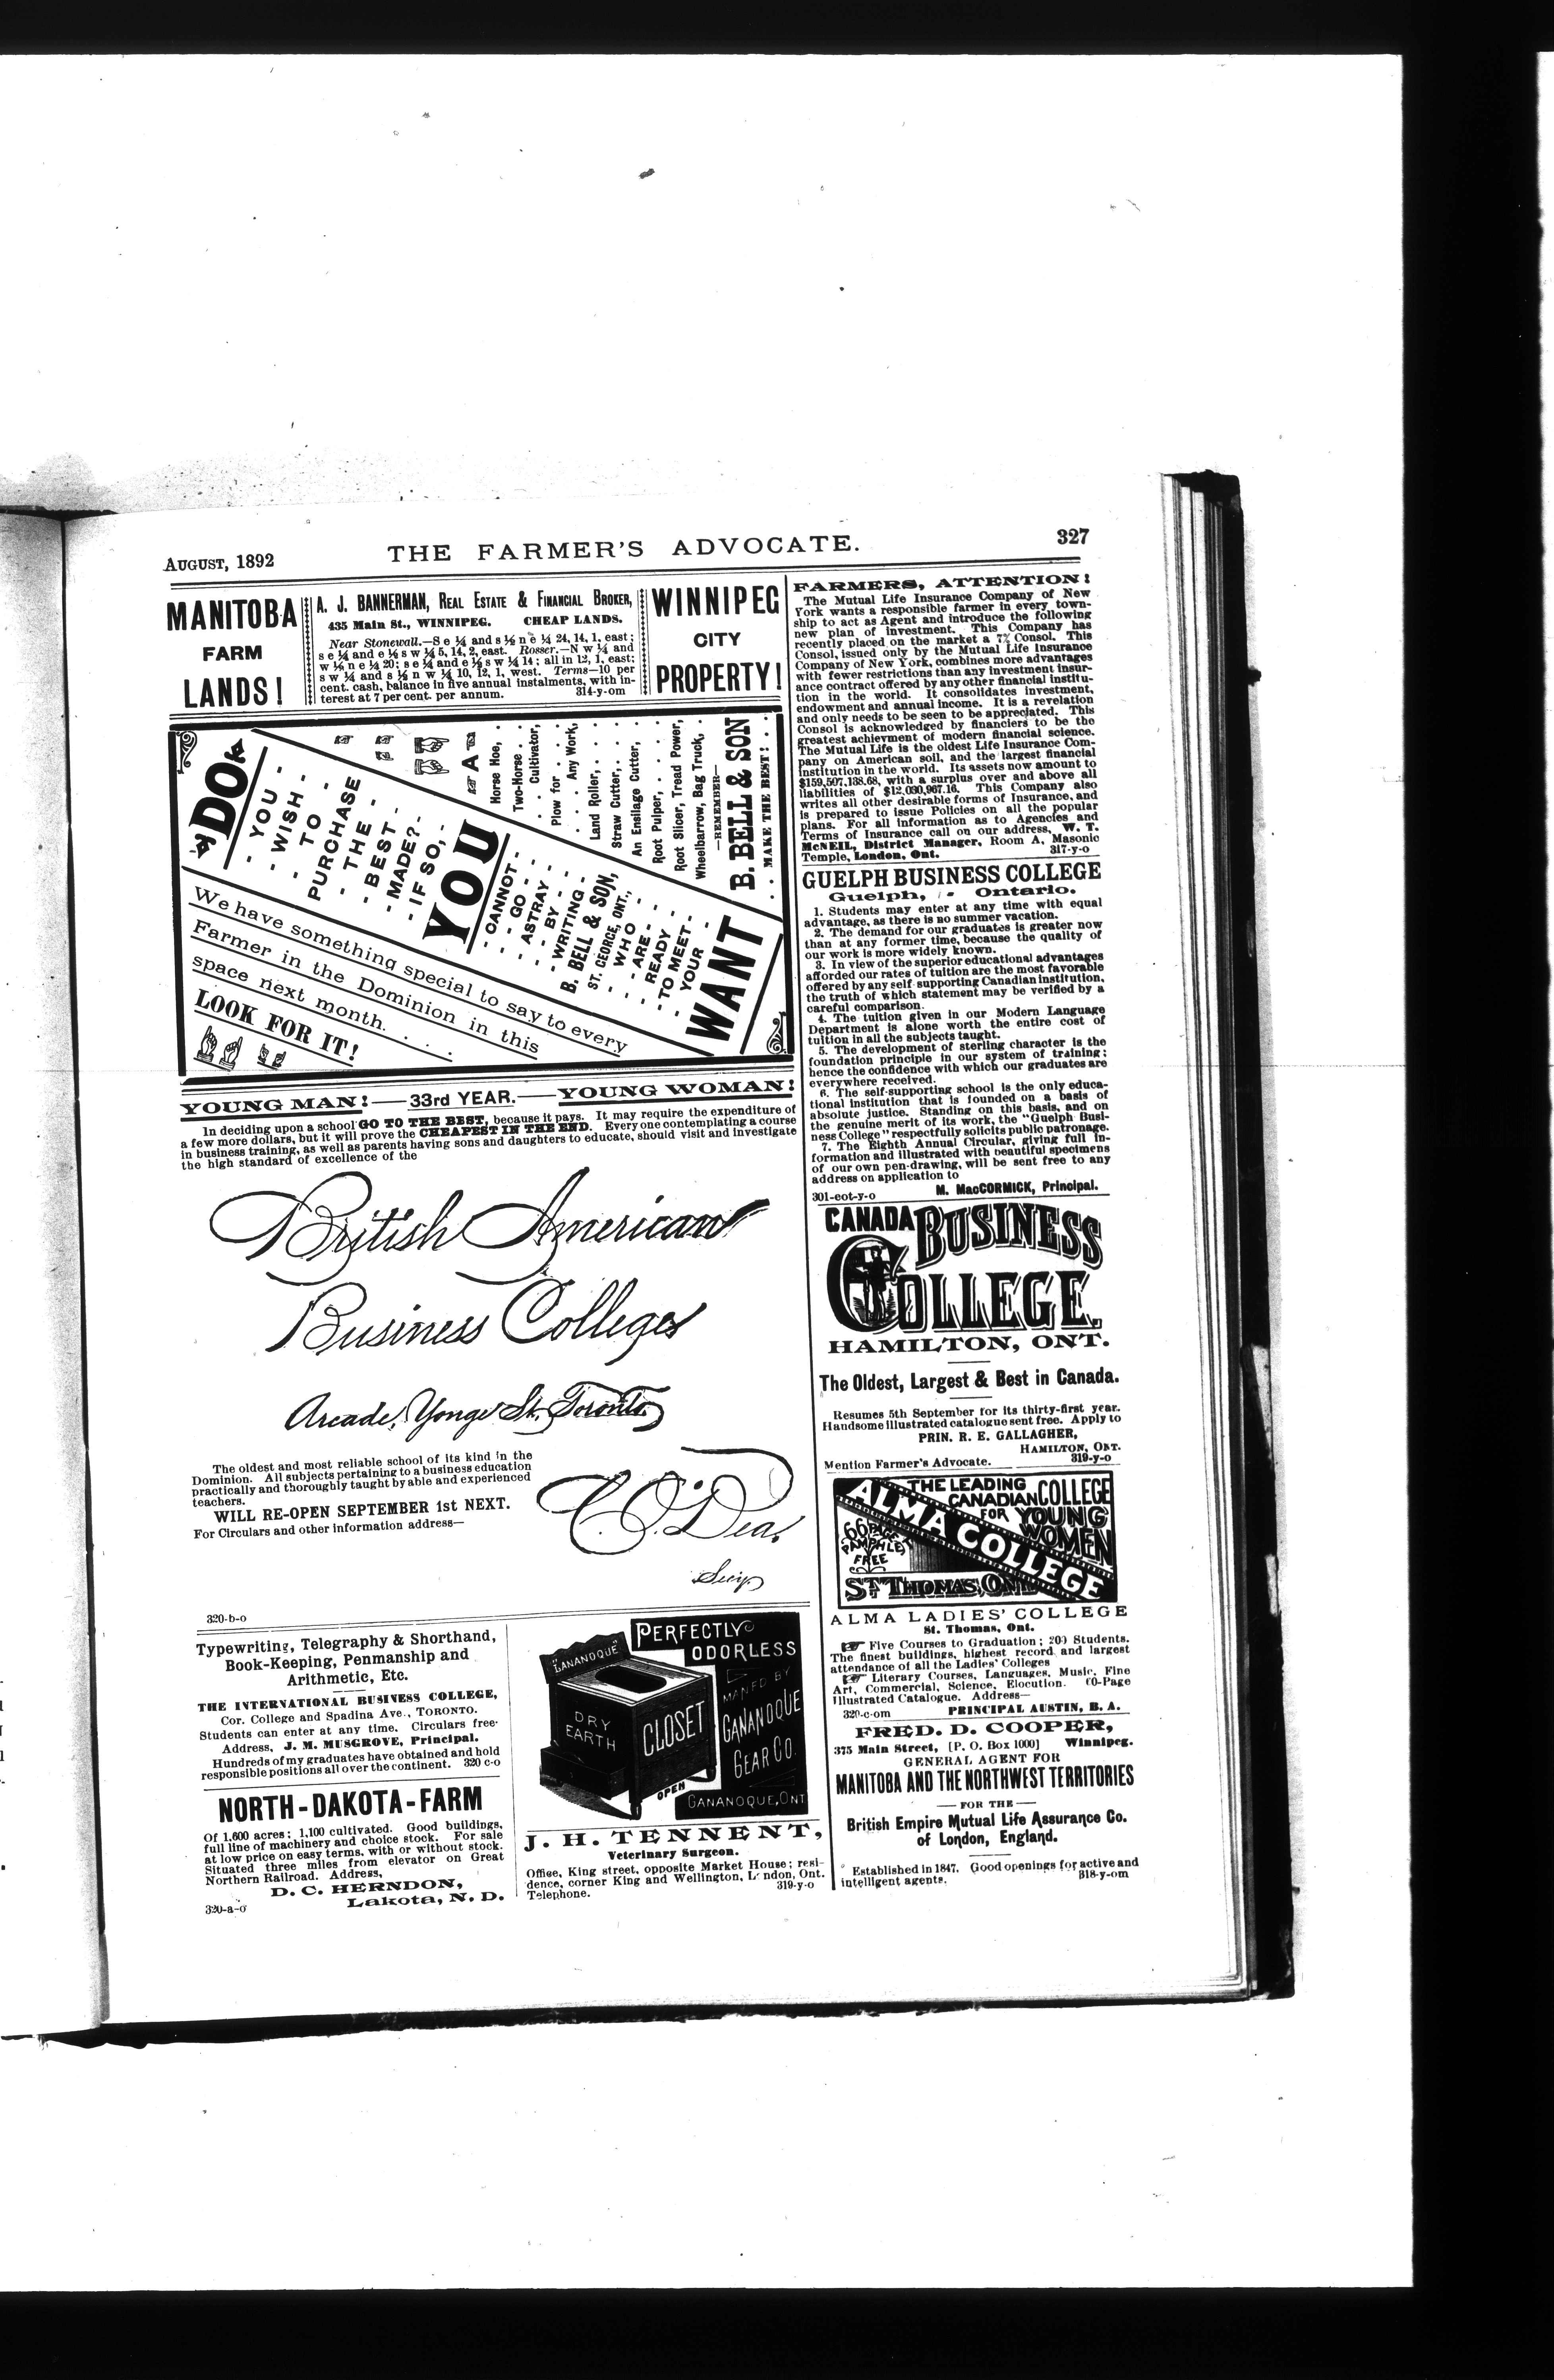 AUGUST, 1892
THE FARMER'S ADVOCATE.
327
MANITOBA
FARM
LANDS!
A. J. BANNERMAN, REAL ESTATE & FINANCIAL BROKER,
435 Main St., WINNIPEG. CHEAP LANDS.
Near Stonewall.—S e ¼ and s ½ n e ¼ 24, 14, 1, east;
s e ¼ and e ½ s w ¼ 5, 14, 2, east. Rosser.—N w ¼ and
w ½ n e ¼ 20; s e ¼ and e ½ s w ¼ 14; all in 12, 1, east;
s w ¼ and s ½ n w ¼ 10, 12, 1, west. Terms—10 per
cent. cash, balance in five annual instalments, with in-
terest at 7 per cent. per annum. 314-y-om
WINNIPEG
CITY
PROPERTY!
DO
- YOU -
- WISH -
- TO -
PURCHASE
- THE -
- BEST -
- MADE? -
- IF SO, -
YOU
- CANNOT -
- GO -
- ASTRAY -
- BY -
- WRITING -
B. BELL & SON,
ST. GEORGE, ONT.,
- WHO -
- ARE -
- READY -
- TO MEET -
- YOUR -
WANT
A
Horse Hoe, .
Two-Horse . .
. . Cultivator,
Plow for . . .
. . . Any Work,
Land Roller, . . .
Straw Cutter, . . .
An Ensilage Cutter, .
Root Pulper, . . . .
Root Slicer, Tread Power,
Wheelbarrow, Bag Truck, .
—REMEMBER—
B. BELL & SON
. . MAKE THE BEST! . .
We have something special to say to every
Farmer in the Dominion in this
space next month. . . .
LOOK FOR IT!
YOUNG MAN!——33rd YEAR.——YOUNG WOMAN!
In deciding upon a school GO TO THE BEST, because it pays. It may require the expenditure of
a few more dollars, but it will prove the CHEAPEST IN THE END. Every one contemplating a course
in business training, as well as parents having sons and daughters to educate, should visit and investigate
the high standard of excellence of the
British American
Business Colleges
Arcade, Yonge St. Toronto,
The oldest and most reliable school of its kind in the
Dominion. All subjects pertaining to a business education
practically and thoroughly taught by able and experienced
teachers.
WILL RE-OPEN SEPTEMBER 1st NEXT.
For Circulars and other information address—
C. O'Dea,
Sec'y.
320-b-o
Typewriting, Telegraphy & Shorthand,
Book-Keeping, Penmanship and
Arithmetic, Etc.
THE INTERNATIONAL BUSINESS COLLEGE,
Cor. College and Spadina Ave., TORONTO.
Students can enter at any time. Circulars free.
Address, J. M. MUSGROVE, Principal.
Hundreds of my graduates have obtained and hold
responsible positions all over the continent. 320 c-o
NORTH-DAKOTA-FARM
Of 1,600 acres; 1,100 cultivated. Good buildings,
full line of machinery and choice stock. For sale
at low price on easy terms, with or without stock.
Situated three miles from elevator on Great
Northern Railroad. Address,
D. C. HERNDON,
Lakota, N. D.
320-a-o
PERFECTLY
ODORLESS
"GANANOQUE"
DRY
EARTH
CLOSET
OPEN
MAN'F'D BY
GANANOQUE
GEAR CO.
GANANOQUE, ONT
J. H. TENNENT,
Veterinary Surgeon.
Office, King street, opposite Market House; resi-
dence, corner King and Wellington, London, Ont.
Telephone. 319-y-o
FARMERS, ATTENTION!
The Mutual Life Insurance Company of New
York wants a responsible farmer in every town-
ship to act as Agent and introduce the following
new plan of investment. This Company has
recently placed on the market a 7% Consol. This
Consol, issued only by the Mutual Life Insurance
Company of New York, combines more advantages
with fewer restrictions than any investment insur-
ance contract offered by any other financial institu-
tion in the world. It consolidates investment,
endowment and annual income. It is a revelation
and only needs to be seen to be appreciated. This
Consol is acknowledged by financiers to be the
greatest achievment of modern financial science.
The Mutual Life is the oldest Life Insurance Com-
pany on American soil, and the largest financial
institution in the world. Its assets now amount to
$159,507,138.68, with a surplus over and above all
liabilities of $12,030,967.16. This Company also
writes all other desirable forms of Insurance, and
is prepared to issue Policies on all the popular
plans. For all information as to Agencies and
Terms of Insurance call on our address, W. T.
McNEIL, District Manager, Room A, Masonic
Temple, London, Ont. 317-y-o
GUELPH BUSINESS COLLEGE
Guelph, - Ontario.
1. Students may enter at any time with equal
advantage, as there is no summer vacation.
2. The demand for our graduates is greater now
than at any former time, because the quality of
our work is more widely known.
3. In view of the superior educational advantages
afforded our rates of tuition are the most favorable
offered by any self-supporting Canadian institution,
the truth of which statement may be verified by a
careful comparison.
4. The tuition given in our Modern Language
Department is alone worth the entire cost of
tuition in all the subjects taught.
5. The development of sterling character is the
foundation principle in our system of training;
hence the confidence with which our graduates are
everywhere received.
6. The self-supporting school is the only educa-
tional institution that is founded on a basis of
absolute justice. Standing on this basis, and on
the genuine merit of its work, the "Guelph Busi-
ness College" respectfully solicits public patronage.
7. The Eighth Annual Circular, giving full in-
formation and illustrated with beautiful specimens
of our own pen-drawing, will be sent free to any
address on application to
301-eot-y-o M. MacCORMICK, Principal.
CANADA BUSINESS
COLLEGE,
HAMILTON, ONT.
The Oldest, Largest & Best in Canada.
Resumes 5th September for its thirty-first year.
Handsome illustrated catalogue sent free. Apply to
PRIN. R. E. GALLAGHER,
HAMILTON, ONT.
Mention Farmer's Advocate. 319-y-o
THE LEADING
CANADIAN COLLEGE
FOR YOUNG
WOMEN
ALMA COLLEGE
66 PAGE
PAMPHLET
FREE
ST. THOMAS, ONT.
ALMA LADIES' COLLEGE
St. Thomas, Ont.
Five Courses to Graduation; 200 Students.
The finest buildings, highest record and largest
attendance of all the Ladies' Colleges
Literary Courses, Languages, Music, Fine
Art, Commercial, Science, Elocution. 60-Page
Illustrated Catalogue. Address—
320-c-om PRINCIPAL AUSTIN, B. A.
FRED. D. COOPER,
375 Main Street, [P. O. Box 1000] Winnipeg.
GENERAL AGENT FOR
MANITOBA AND THE NORTHWEST TERRITORIES
—FOR THE—
British Empire Mutual Life Assurance Co.
of London, England.
Established in 1847. Good openings for active and
intelligent agents. 318-y-om